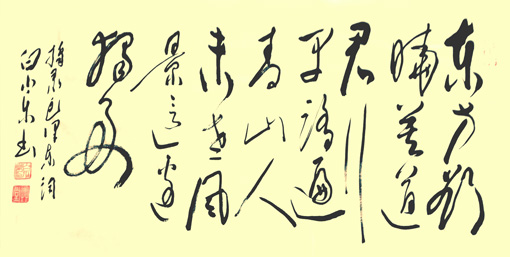 东方欲
晓莫道
君行
早踏遍
青山人
未老风
景这边
独好
录毛泽东词
白小东书